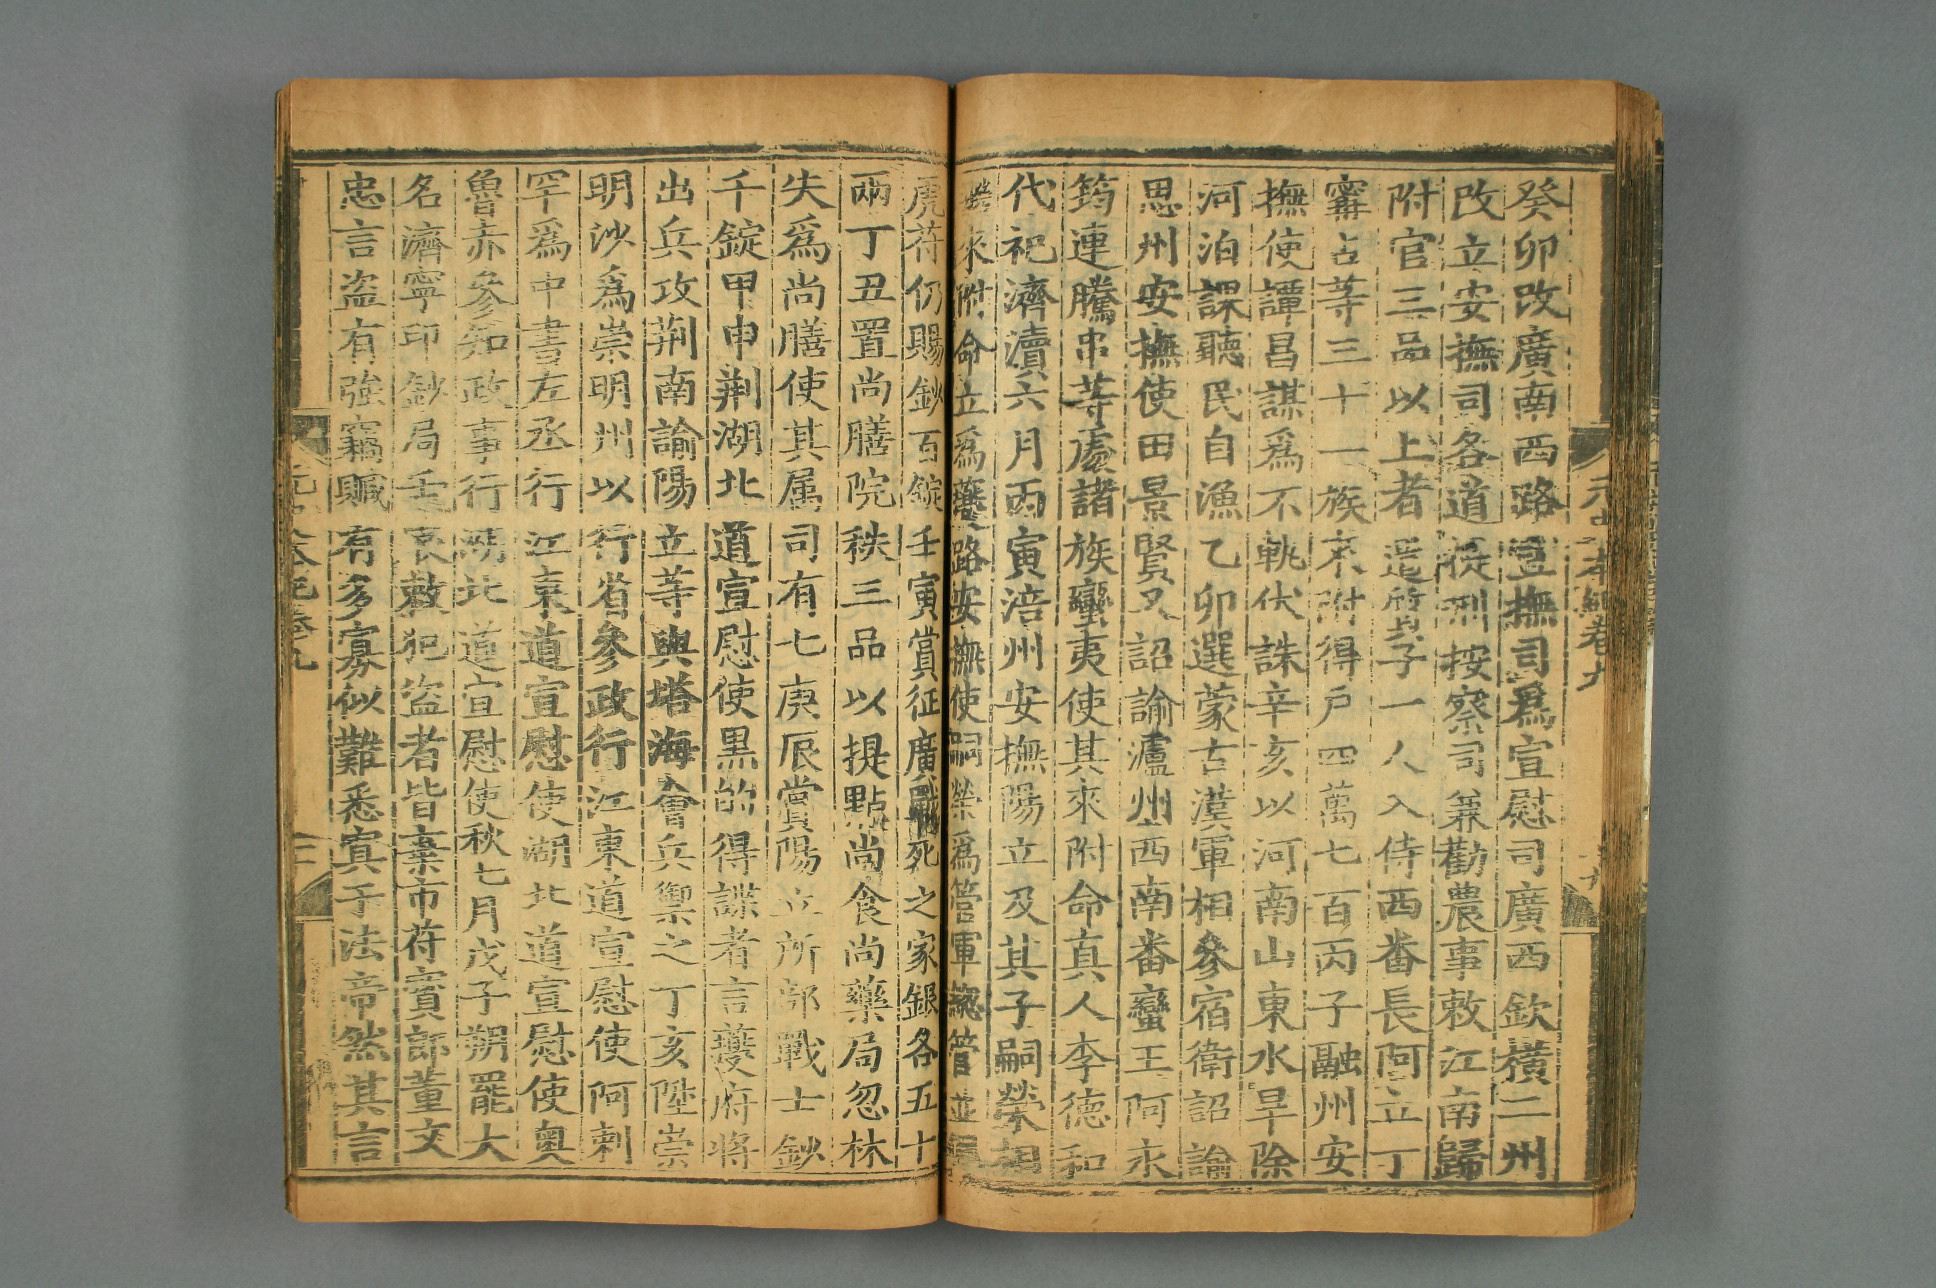 癸卯改廣南西路宣撫司爲宣慰司廣西欽橫二州
改立安撫司各道提刑按察司兼勸農事敕江南歸
附官三品以上者遣質子一人入侍西番長阿立丁
甯占等三十一族來附得戶四萬七百丙子融州安
撫使譚昌謀爲不軌伏誅辛亥以河南山東水旱除
河泊課聽民自漁乙卯選蒙古漢軍相參宿衛詔諭
思州安撫使田景賢又詔諭瀘州西南番蠻王阿永
筠連騰串等處諸族蠻夷使其來附命真人李德和
代祀濟瀆六月丙寅涪州安撫陽立及其子嗣榮相
繼來附命立爲夔路安撫使嗣榮爲管軍總管並
虎符仍賜鈔百錠壬寅賞征廣戰死之家銀各五十
兩丁丑置尚膳院秩三品以提點尚食尚藥局忽林
失爲尚膳使其属司有七庚辰賞陽立所部戰士鈔
千錠甲申荆湖北道宣慰使黒的得諜者言夔府將
出兵攻荆南諭陽立等與塔海會兵禦之丁亥陞崇
明沙爲崇明州以行省參政行江東道宣慰使阿剌
罕爲中書左丞行江東道宣慰使湖北道宣慰使奥
魯赤參知政事行湖北道宣慰使秋七月戊子朔罷大
名濟寧印鈔局壬辰敕犯盗者皆棄市符寶郎董文
忠言盗有強竊贓有多寡似難悉寘于法帝然其言
元史本紀卷九